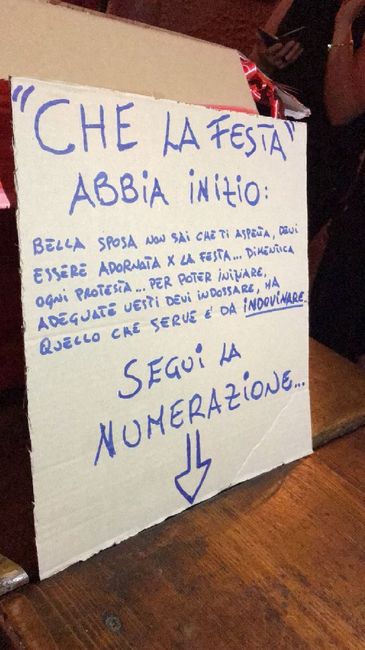 "CHE LA FESTA"
ABBIA INIZIO:
BELLA SPOSA NON SAI CHE TI ASPETTA, DEVI
ESSERE ADORNATA X LA FESTA... DIMENTICA
OGNI PROTESTA... PER POTER INIZIARE,
ADEGUATE VESTI DEVI INDOSSARE, MA
QUELLO CHE SERVE E' DA INDOVINARE
SEGUI LA
NUMERAZIONE...